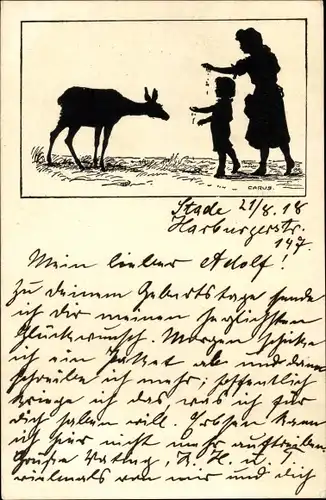 CARUS.
Stade 21/8.18
Harburgerstr.
147.
Mein lieber Adolf!
Zu deinem Geburtstage sende
ich dir meinen herzlichsten
Glückwunsch. Morgen schicke
ich ein Packet ab und dann
schreibe ich mehr; hoffentlich
kriege ich das was ich für
dich haben will. Erbsen kann
ich hier nicht mehr auftreiben.
Grüße Vater,
vielmals von mir und dich